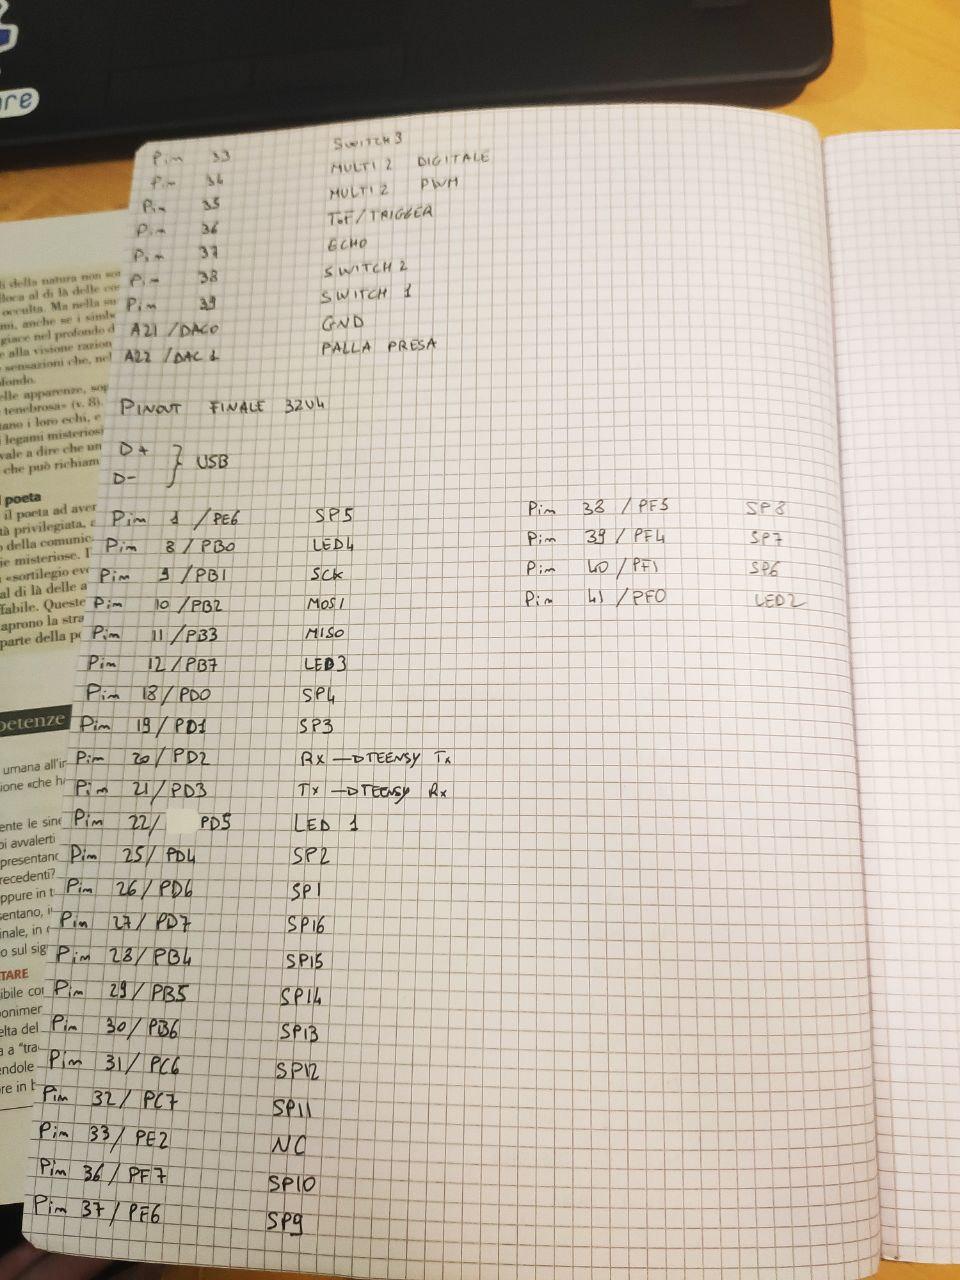 are
Pin 33 SWITCH3
Pin 34 MULTI 2 DIGITALE
Pin 35 MULTI 2 PWM
Pin 36 ToF/TRIGGER
Pin 37 ECHO
Pin 38 SWITCH 2
Pin 39 SWITCH 1
A21 /DAC0 GND
A22 /DAC 1 PALLA PRESA
PINOUT FINALE 32U4
D+
D-
} USB
Pin 1 /PE6 SP5
Pin 8 /PB0 LED4
Pin 9 /PB1 SCK
Pin 10 /PB2 MOSI
Pin 11 /PB3 MISO
Pin 12 /PB7 LED3
Pin 18 / PD0 SP4
Pin 19 / PD1 SP3
Pin 20 / PD2 Rx —▷TEENSY Tx
Pin 21 / PD3 Tx —▷TEENSY Rx
Pin 22/ PD5 LED 1
Pin 25/ PD4 SP2
Pin 26 / PD6 SP1
Pin 27 / PD7 SP16
Pin 28 / PB4 SP15
Pin 29 / PB5 SP14
Pin 30 / PB6 SP13
Pin 31 / PC6 SP12
Pin 32 / PC7 SP11
Pin 33 / PE2 NC
Pin 36 / PF7 SP10
Pin 37 / PF6 SP9
Pin 38 / PF5 SP8
Pin 39 / PF4 SP7
Pin 40 / PF1 SP6
Pin 41 / PF0 LED2
li della natura non
lloca al di là delle
occulta. Ma nella
anche se i
giace nel profondo d
alla visione
sensazioni che, nel
fondo.
elle apparenze,
tenebrosa» (v. 8).
tano i loro echi, e
i legami misteriosi
vale a dire che un
che può richiam
poeta
il poeta ad aver
tà privilegiata,
della comunic
ie misteriose. I
«sortilegio
al di là delle a
fabile. Queste
aprono la stra
parte della
petenze
umana all'in
ione «che h
ente le
oi avvalerti
presentano
recedenti?
oppure in t
sentano,
inale, in
o sul sig
TARE
ibile con
elta del
a "tra
endole
re in